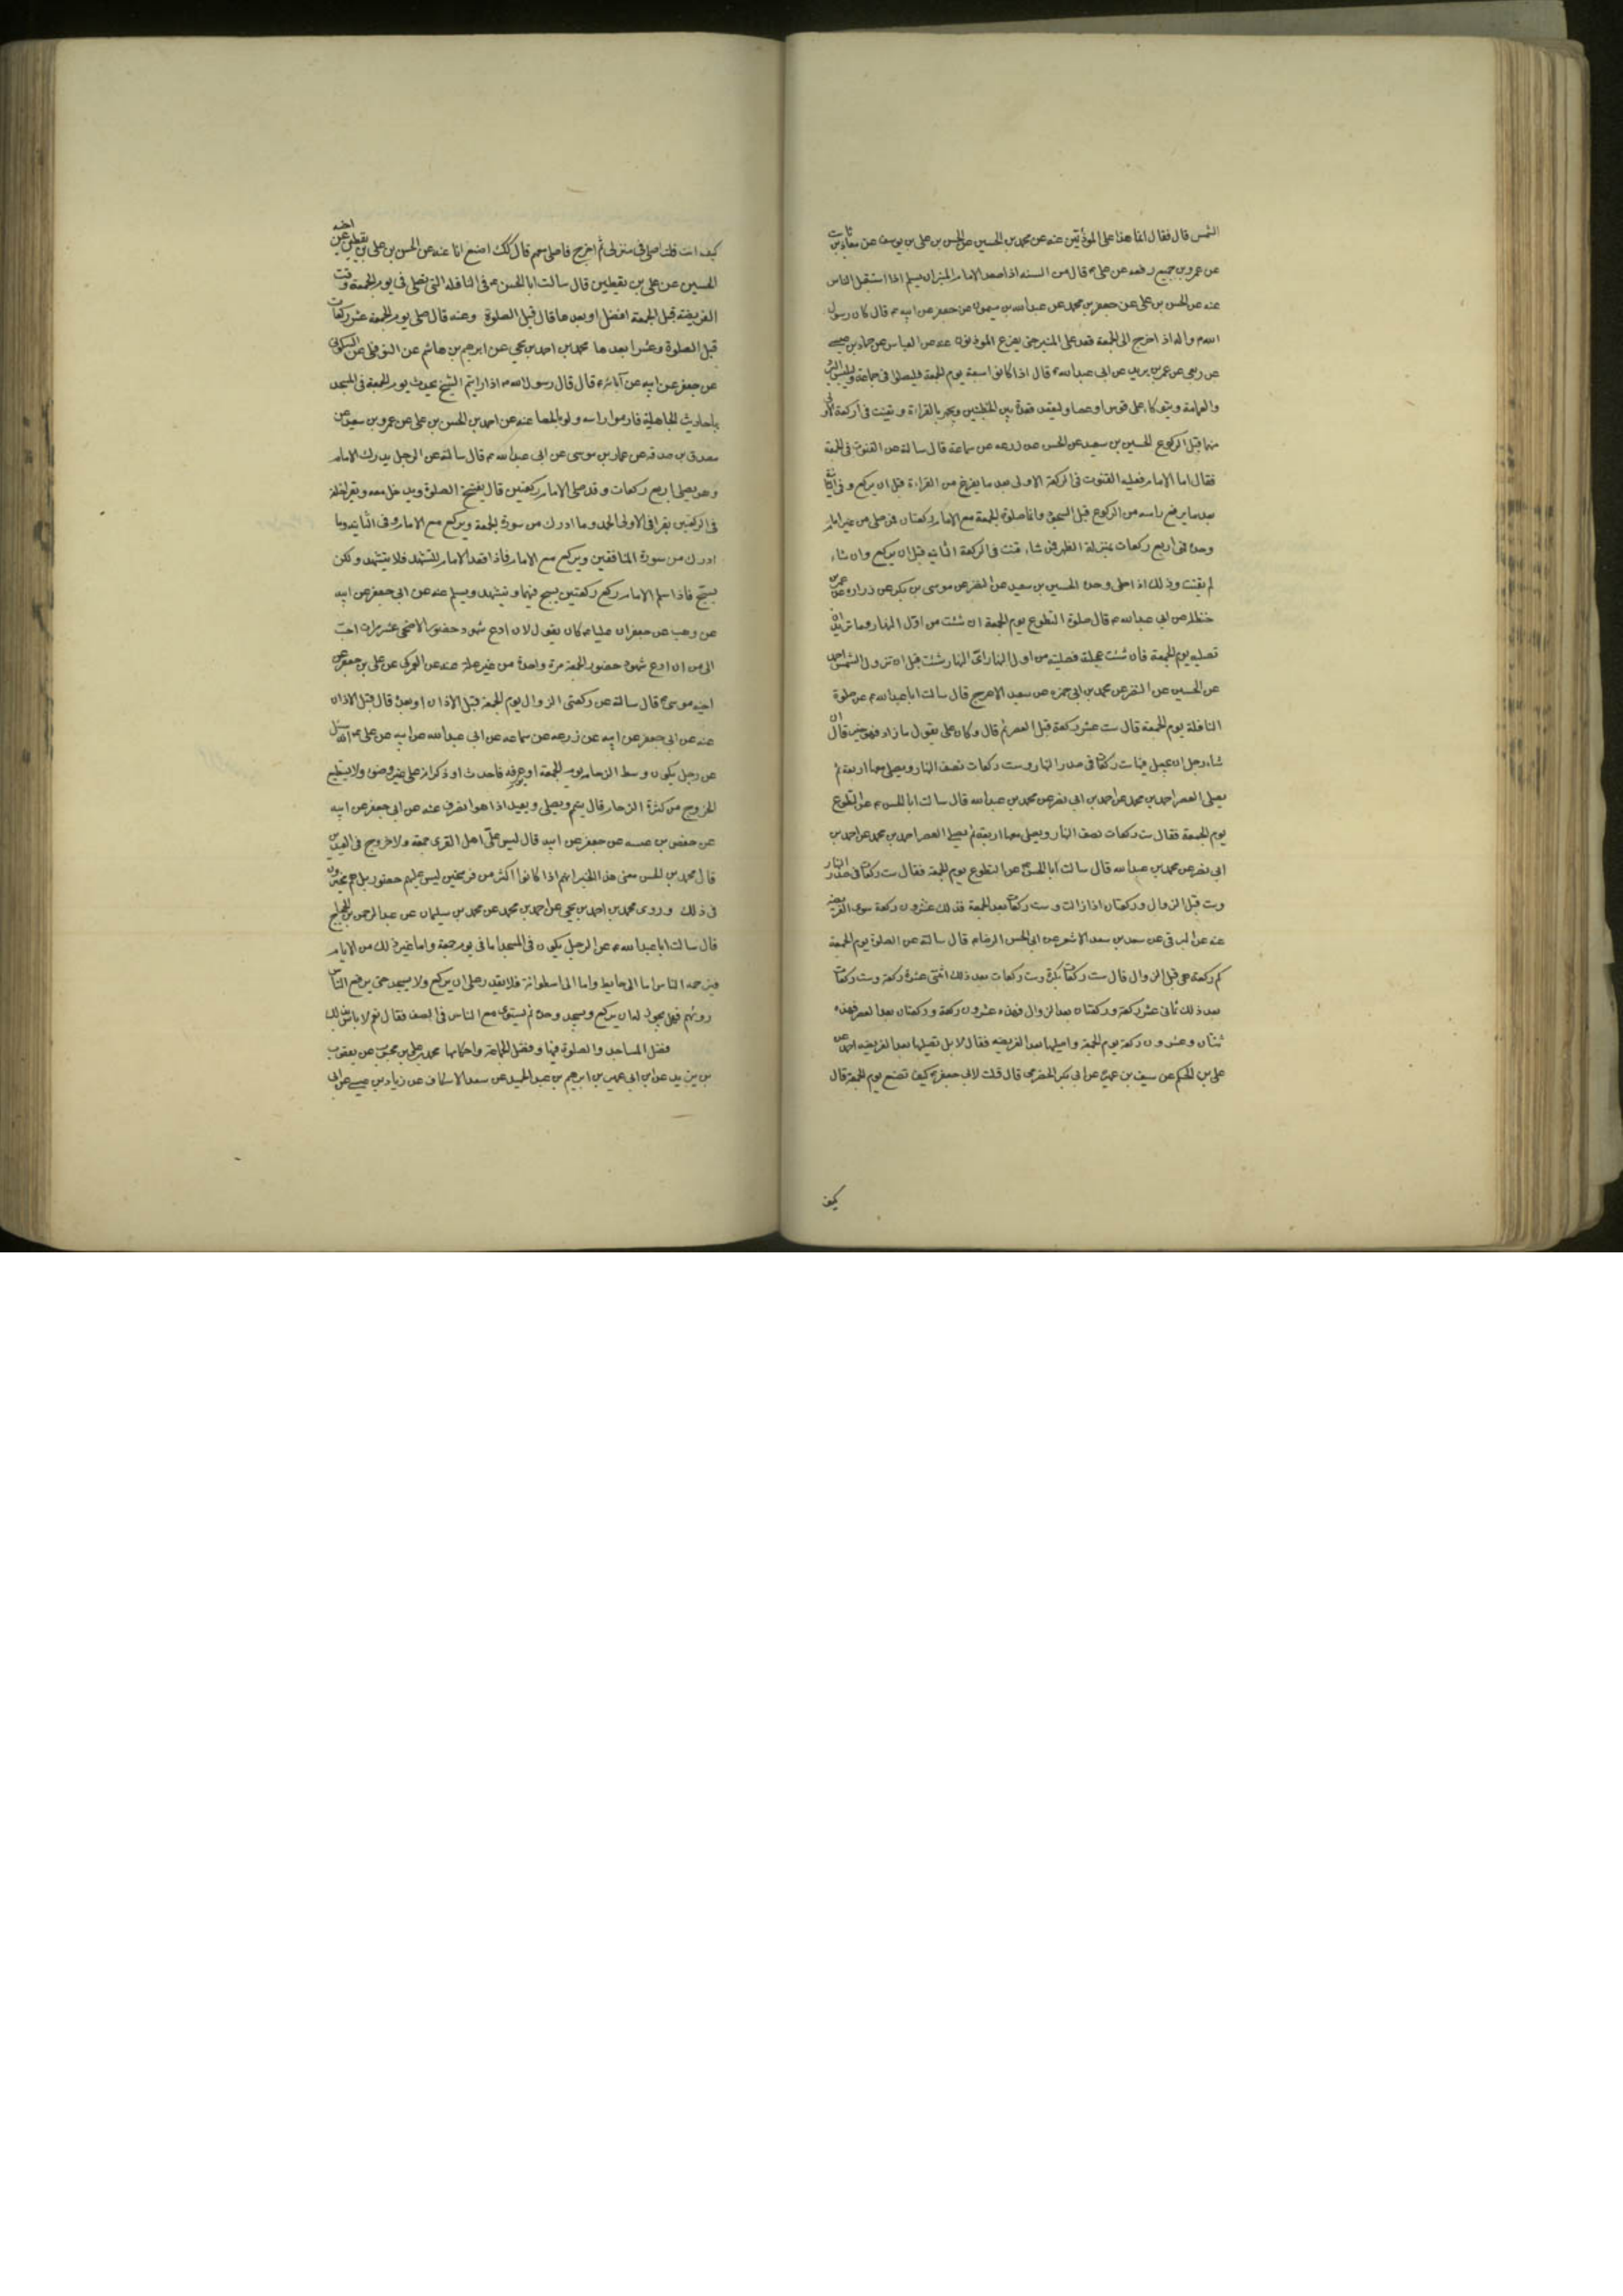 الشمس قال فقال انما هذا على المؤذنين عنه عن محمد بن الحسين عن الحسن بن على بن يوسف عن معاذ بن ثابت
عن عمرو بن جميع رفعه عن على ع قال من السنه اذا صعد الامام المنبر ان يسلم اذا استقبل الناس
عنه عن الحسن بن على عن جعفر بن محمد عن عبدالله بن ميمون عن جعفر عن ابيه ع قال كان رسول
الله ص واله اذ اخرج الى الجمعة قعد على المنبر حتى يفرغ المؤذنون عنه عن العباس عن حماد بن عيسى
عن ربعى عن عمر بن يزيد عن ابى عبدالله ع قال اذا كانوا سبعة يوم الجمعة فليصلوا فى جماعة وليلبس البرد
والعمامة ويتوكاء على قوس او عصا وليقعد قعدة بين الخطبتين ويجهر بالقراءة ويقنت فى الركعة الاولى
منهما قبل الركوع الحسين بن سعيد عن الحسن عن زرعه عن سماعة قال سالته عن القنوت فى الجمعة
فقال اما الامام فعليه القنوت فى الركعة الاولى بعد ما يفرغ من القراءة قبل ان يركع وفى الثانية
بعد ما يرفع راسه من الركوع قبل السجود وانما صلوة الجمعة مع الامام ركعتان فمن صلى من غير امام
وحده فهى اربع ركعات بمنزلة الظهر فمن شاء قنت فى الركعة الثانيه قبل ان يركع وان شاء
لم يقنت وذلك اذا صلى وحده الحسين بن سعيد عن النضر عن موسى بن بكر عن زرارة عن عمر بن
حنظلة عن ابى عبدالله ع قال صلوة التطوع يوم الجمعة ان شئت من اول النهار وما تريد ان
تصليه يوم الجمعة فان شئت عجلته فصليته من اول النهار اى النهار شئت قبل ان تزول الشمس احمد
عن الحسين عن النضر عن محمد بن ابى حمزه عن سعيد الاعرج قال سالت ابا عبدالله ع عن صلوة
النافلة يوم الجمعة قال ست عشرة ركعة قبل العصر ثم قال وكان على يقول ما زاد فهو خير قال ان
شاء رجل ان يجعل منها ست ركعات فى صدر النهار وست ركعات نصف النهار ويصلى معها اربعة ثم
يصلى العصر احمد بن محمد عن احمد بن ابى نصر عن محمد بن عبدالله قال سالت ابا الحسن ع عن التطوع
يوم الجمعة فقال ست ركعات نصف النهار ويصلى معها اربعة ثم يصلى العصر احمد بن محمد عن احمد بن
ابى نصر عن محمد بن عبدالله قال سالت ابا الحسن ع عن التطوع يوم الجمعة فقال ست ركعات فى صدر النهار
وست قبل الزوال وركعتان اذا زالت وست ركعات بعد الجمعة فذلك عشرون ركعة سوى الفريضه
عنه عن البرقى عن سعد بن سعد الاشعرى عن ابى الحسن الرضا ع قال سالته عن الصلوة يوم الجمعة
كم ركعة هى قبل الزوال قال ست ركعات بكرة وست ركعات بعد ذلك اثنتى عشرة ركعة وست ركعات
بعد ذلك ثمانى عشر ركعة وركعتان بعد الزوال فهذه عشرون ركعة وركعتان بعد العصر فهذه
ثنتان وعشرون ركعة يوم الجمعة واصليها بعد الفريضه فقال لا بل تصليها بعد الفريضه احمد عن
على بن الحكم عن سيف بن عميرة عن ابى بكر الحضرمى قال قلت لابى جعفر ع كيف تصنع يوم الجمعة قال
كيف
كيف انت قلت اصلى فى منزلى ثم اخرج فاصلى معهم قال كذلك اصنع انا عنه عن الحسن بن على بن يقطين عن اخيه
الحسين عن على بن يقطين قال سالت ابا الحسن ع فى النافله التى تصلى فى يوم الجمعة وقت
الفريضة قبل الجمعة افضل او بعدها قال قبل الصلوة وعنه قال صلى يوم الجمعة عشر ركعات
قبل الصلوة وعشرا بعدها محمد بن احمد بن يحيى عن ابرهيم بن هاشم عن النوفلى عن السكونى
عن جعفر عن ابيه عن آبائه ع قال قال رسول الله ص اذا رايتم الشيخ يحدث يوم الجمعة فى المسجد
باحاديث الجاهلية فارموا راسه ولو بالحصا عنه عن احمد بن الحسن بن على عن عمرو بن سعيد عن
مصدق بن صدقه عن عمار بن موسى عن ابى عبدالله ع قال سالته عن الرجل يدرك الامام
وهو يصلى اربع ركعات وقد صلى الامام ركعتين قال يفتتح الصلوة ويدخل معه ويقرا خلفه
فى الركعتين يقرا فى الاولى الحمد وما ادرك من سورة الجمعة ويركع مع الامام وفى الثانيه وما
ادرك من سورة المنافقين ويركع مع الامام فاذا قعد الامام للتشهد فلا يتشهد ولكن
يسبح فاذا سلم الامام ركع ركعتين يسبح فيهما ويتشهد ويسلم عنه عن ابى جعفر عن ابيه
عن وهب عن جعفر ان عليا ع كان يقول لان ادع شهود حضور الاضحى عشر مرات احب
الى من ان ادع شهود حضور الجمعة مرة واحدة من غير علة عنه عن العمركى عن على بن جعفر عن
اخيه موسى ع قال سالته عن ركعتى الزوال يوم الجمعة قبل الاذان او بعده قال قبل الاذان
عنه عن ابى جعفر عن ابيه عن زرعه عن سماعه عن ابى عبدالله عن ابيه عن على ع انه سئل
عن رجل يكون وسط الزحام يوم الجمعة او عرفه فاحدث او ذكر انه على غير وضوء ولا يستطيع
الخروج من كثرة الزحام قال يتيمم ويصلى ويعيد اذا هو انصرف عنه عن ابى جعفر عن ابيه
عن حفص بن عن جعفر عن ابيه قال ليس على اهل القرى جمعة ولا خروج فى العيدين
قال محمد بن الحسن معنى هذا الخبر انهم اذا كانوا اكثر من فرسخين ليس عليهم حضور بل هم مخيرون
فى ذلك وروى محمد بن احمد بن يحيى عن احمد بن محمد عن محمد بن سليمان عن عبد الرحمن بن الحجاج
قال سالت ابا عبدالله ع عن الرجل يكون فى المسجد اما فى يوم جمعة واما غير ذلك من الايام
فيزحمه الناس اما الى حايط واما الى اسطوانة فلا يقدر على ان يركع ولا يسجد حتى يرفع الناس
رؤسهم فهل يجوز له ان يركع ويسجد وحده ثم يستوى مع الناس فى الصف فقال نعم لا باس بذلك
فضل المساجد والصلوة فيها وفضل الجماعة واحكامها محمد بن على بن محبوب عن يعقوب
بن يزيد عن ابن ابى عمير عن ابرهيم بن عبد الحميد عن سعد الاسكاف عن زياد بن عيسى عن ابى